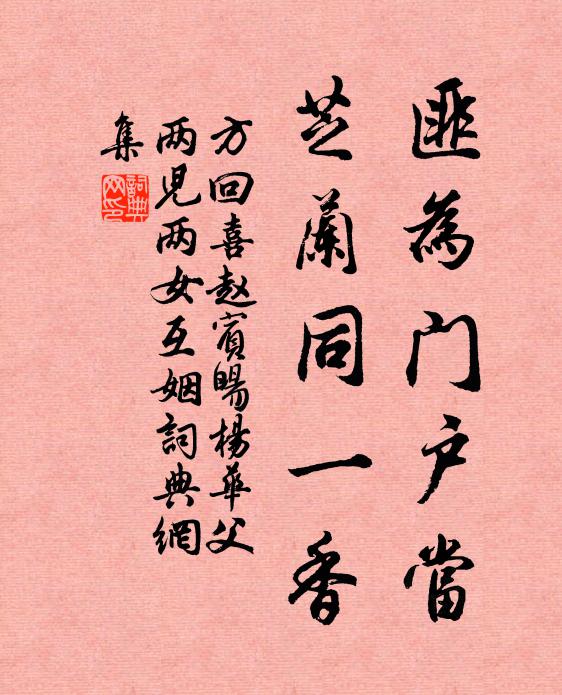 匪為门户當
芝蘭同一香
方回喜赵賓暘楊華父
两兒两女互姻詞典網
集
詞典
网印